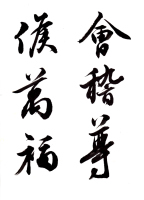 會稽尊
侯萬福